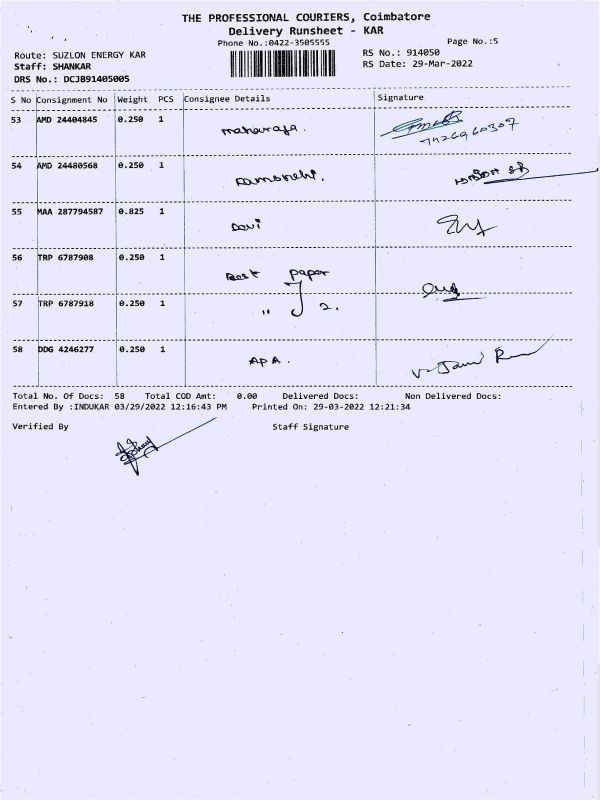 THE PROFESSIONAL COURIERS, Coimbatore
Delivery Runsheet - KAR
Phone No.:0422-3505555 Page No.:5
Route: SUZLON ENERGY KAR RS No.: 914050
Staff: SHANKAR RS Date: 29-Mar-2022
DRS No.: DCJB91405005
S No Consignment No Weight PCS Consignee Details Signature
53 AMD 24404845 0.250 1 maharaja.
54 AMD 24480568 0.250 1
55 MAA 287794587 0.825 1 Devi
56 TRP 6787908 0.250 1 Best paper
57 TRP 6787918 0.250 1 " 2.
58 DDG 4246277 0.250 1 APA.
Total No. Of Docs: 58 Total COD Amt: 0.00 Delivered Docs: Non Delivered Docs:
Entered By :INDUKAR 03/29/2022 12:16:43 PM Printed On: 29-03-2022 12:21:34
Verified By Staff Signature